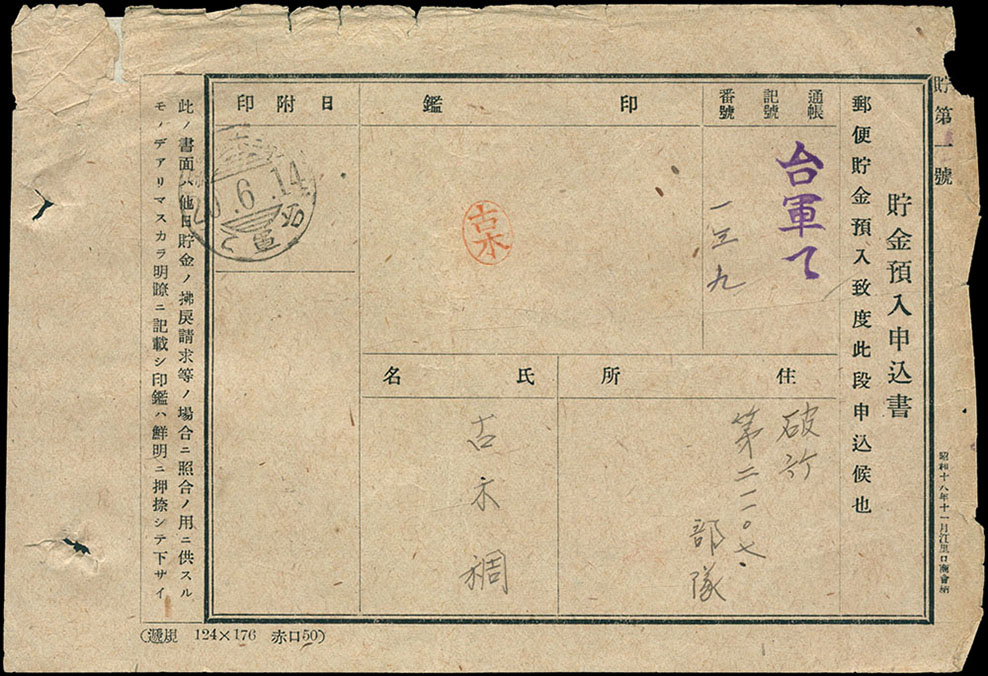 貯第一號
貯金預入申込書
昭和十八年十一月江里口商會納
郵便貯金預入致度此段申込候也
通帳
記號
番號
台軍て
一三九
印鑑
古木
日附印
20.6.14
台軍て
住所
破竹
第二一〇七
部隊
氏名
古木稠
此ノ書面ハ他日貯金ノ拂戾請求等ノ場合ニ照合ノ用ニ供スル
モノデアリマスカラ明瞭ニ記載シ印鑑ハ鮮明ニ押捺シテ下サイ
124×176 赤口50)